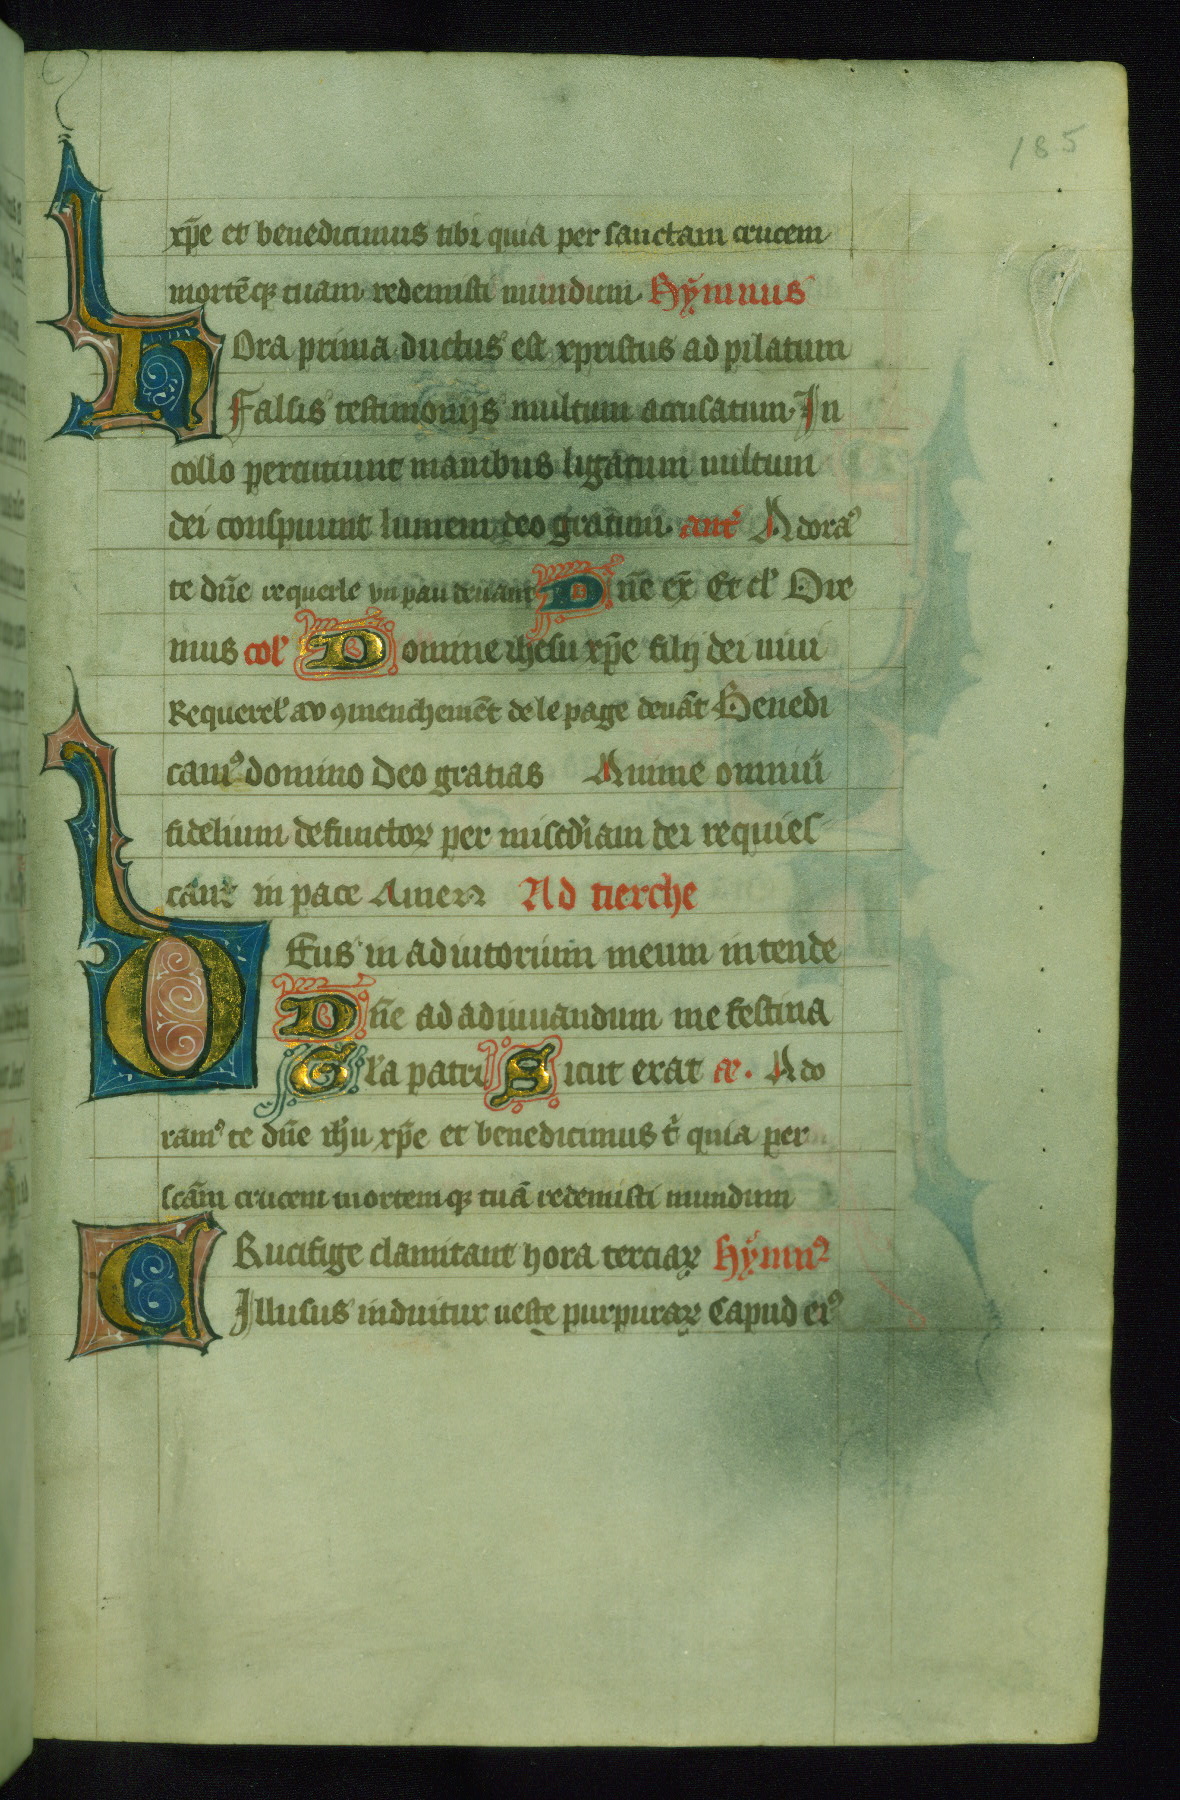 185
xp̄e et benedicimus tibi quia per sanctam crucem
mortēq̨ tuam redemisti mundum. Hẏmnus
Hora prima ductus est xpristus ad pilatum
Falsis testimonijs multum accusatum. In
collo percutiunt manibus ligatum uultum
dei conspuunt lumem deo gratum. ant̾ Adora᷒
te dn̄e requerle vn pau deuant Dn̄e ex̄ Et cl̾ Ore
mus col̾ Domine ihesu xp̄e filij dei uiui
Requerel̾ av ꝯmenchemēt de le page deuāt Benedi
cam᷒ domino Deo gratias Anime omniū
fidelium defunctoꝝ per miscd̾iam dei requies
cant in pace Amen Ad tierche
Deus in adiutorium meum intende
Dn̄e ad adiuuandum me festina
Gl̾a patri Sicut erat æ. Ado
ram᷒ te dn̄e ih̄u xp̄e et benedicimus t̾ quia per
scām crucem mortemq̨ tuā redemisti mundum
Crucifige clamitant hora terciaꝝ Hẏmn᷒
Illusus induitur ueste purpuraꝝ Capud ei᷒